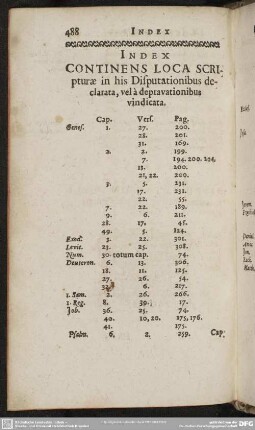 488 INDEX
INDEX
CONTINENS LOCA SCRI-
pturæ in his Disputationibus de-
clarata, vel à depravationibus
vindicata.
Cap. Vers. Pag.
Genes. 1. 27. 200.
28. 201.
31. 169.
2. 2. 199.
7. 194. 200. 204.
18. 200.
21, 22. 200.
3. 5. 231.
17. 231.
22. 55.
7. 22. 189.
9. 6. 211.
28. 17. 48.
49. 5. 124.
Exod. 3. 22. 301.
Levit. 25. 25. 308.
Num. 30. totum cap. 74.
Deuteron. 6. 13. 306.
18. 11. 125.
27. 26. 54.
32. 6. 217.
1. Sam. 2. 26. 266.
1. Reg. 8. 39. 17.
Job. 36. 25. 74.
40. 10, 20. 175, 176.
41. 175.
Psalm. 6. 2. 259.
Cap.